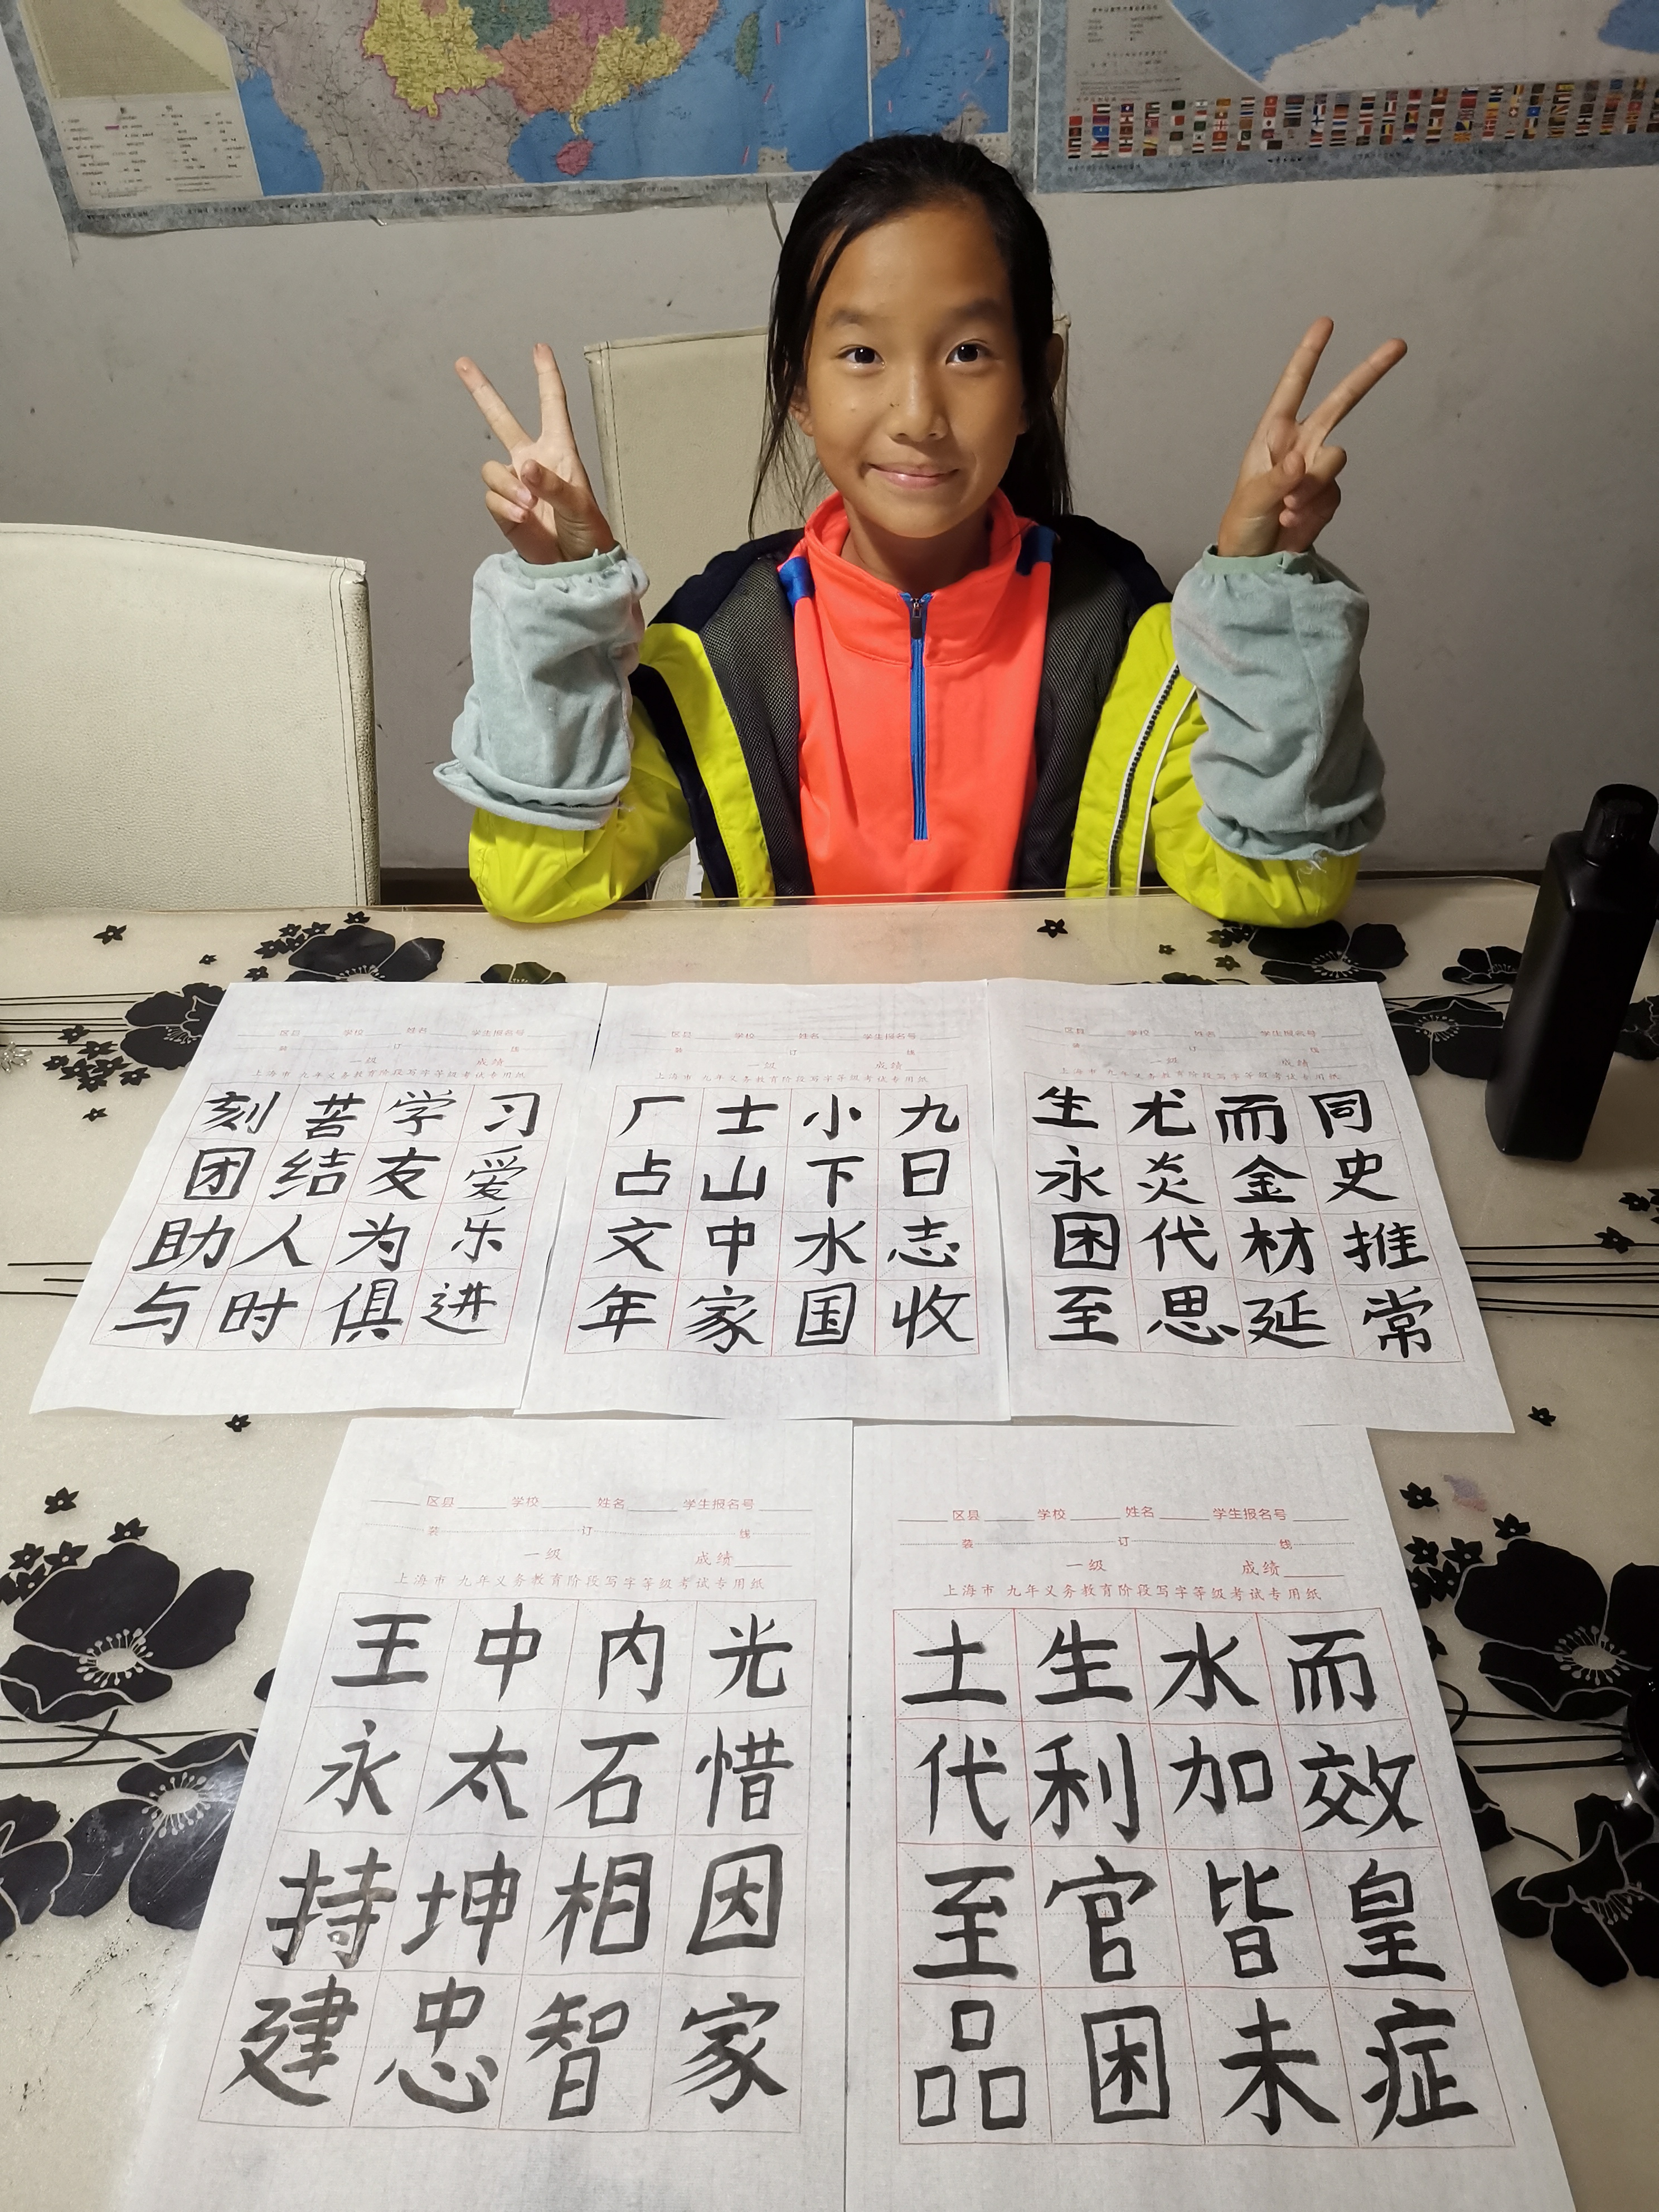 区县 学校 姓名 学生报名号
装 订 线
一级 成绩
上海市 九年义务教育阶段写字等级考试专用纸
刻苦学习
团结友爱
助人为乐
与时俱进
区县 学校 姓名 学生报名号
装 订 线
一级 成绩
上海市 九年义务教育阶段写字等级考试专用纸
厂士小九
占山下日
文中水志
年家国收
区县 学校 姓名 学生报名号
装 订 线
一级 成绩
上海市 九年义务教育阶段写字等级考试专用纸
生尤而同
永炎金史
困代材推
至思延常
区县 学校 姓名 学生报名号
装 订 线
一级 成绩
上海市 九年义务教育阶段写字等级考试专用纸
王中内光
永太石惜
持坤相因
建忠智家
区县 学校 姓名 学生报名号
装 订 线
一级 成绩
上海市 九年义务教育阶段写字等级考试专用纸
土生水而
代利加效
至官皆皇
品困未症